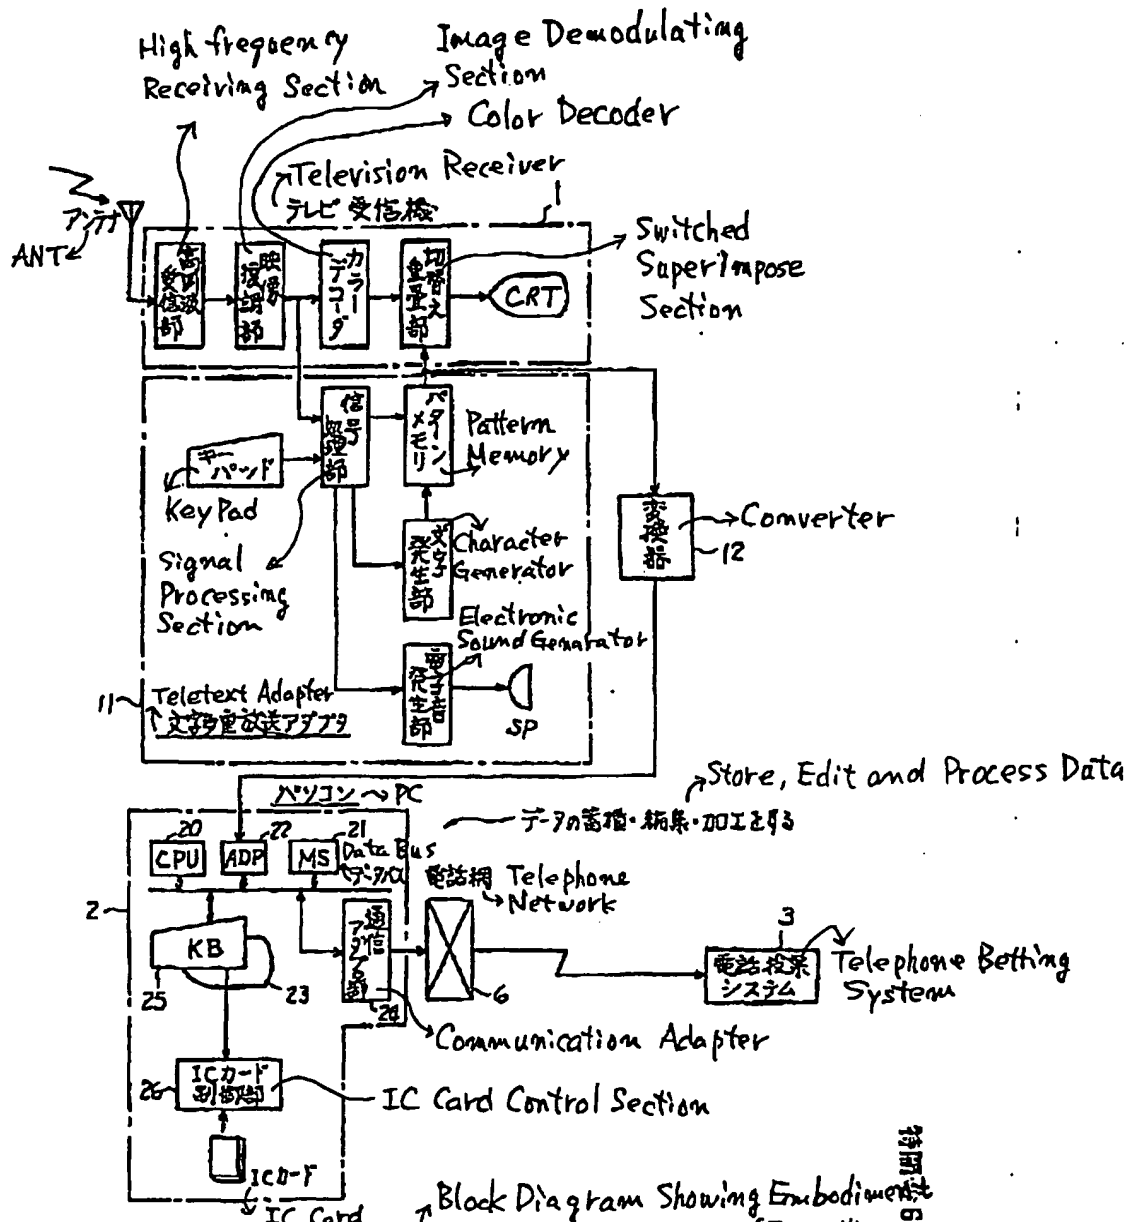 High frequency
Receiving Section
Image Demodulating
Section
Color Decoder
Television Receiver
テレビ受信機
1
アンテナ
ANT
Switched
SuperImpose
Section
高周波
受信部
映像
復調部
カラー
デコーダ
切替え
重畳部
CRT
信号
処理部
パターン
メモリ
Pattern
Memory
キー
パッド
KeyPad
Signal
Processing
Section
文字
発生部
Character
Generator
Electronic
Sound Genarator
電子音
発生部
SP
変換器
Converter
12
11
Teletext Adapter
文字多重放送アダプタ
Store, Edit and Process Data
データの蓄積・編集・加工をする
パソコン
PC
20
22
21
CPU
ADP
MS
Data Bus
データバス
電話網
Telephone
Network
2
KB
25
23
通信
アダプタ部
24
6
3
電話投票
システム
Telephone Betting
System
Communication Adapter
26
ICカード
制御部
IC Card Control Section
ICカード
IC Card
Block Diagram Showing Embodiment